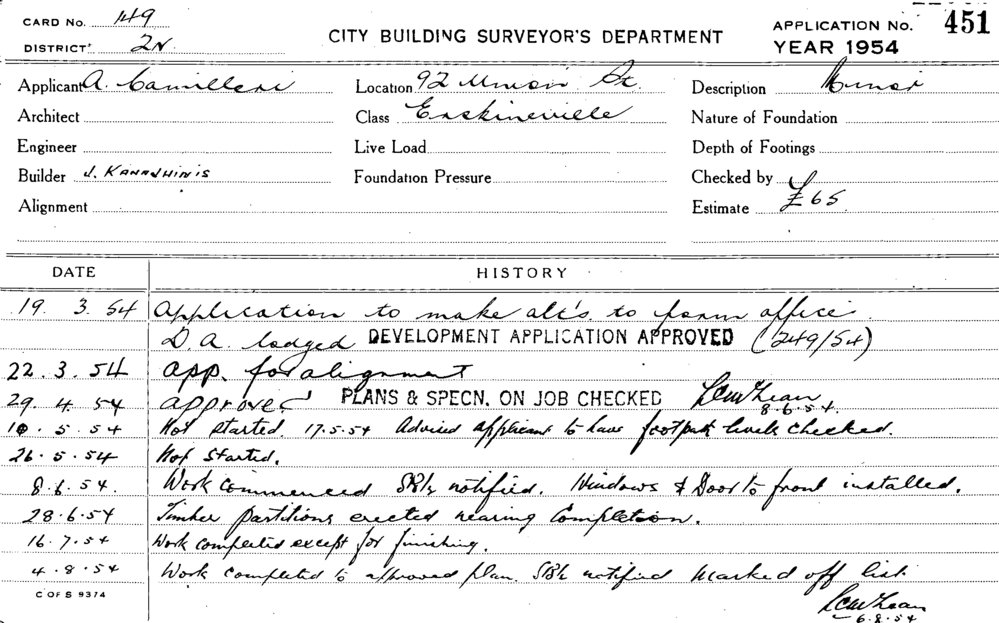 CARD No. 149
DISTRICT 2N
CITY BUILDING SURVEYOR'S DEPARTMENT
APPLICATION No. 451
YEAR 1954
Applicant A. Camilleri Location 92 Union St. Description Minor
Architect Class Erskineville Nature of Foundation
Engineer Live Load Depth of Footings
Builder J. Foundation Pressure Checked by
Alignment Estimate £65
DATE HISTORY
19. 3. 54 Application to make alts. to form office.
D.A. lodged DEVELOPMENT APPLICATION APPROVED (249/54)
22. 3. 54 App. for alignment
29. 4. 54 approved PLANS & SPECN. ON JOB CHECKED
8.6.54
10. 5. 54 Not started. 17.5.54 Advised applicant to have footpath levels checked.
26. 5. 54 Not Started.
8. 6. 54. Work commenced notified. Windows & Door to front installed.
28.6.54 Timber partitions erected nearing Completion.
16.7.54 Work completed except for finishing.
4.8.54 Work completed to approved plan. notified Marked off list.
C OF S 9374
6.8.54